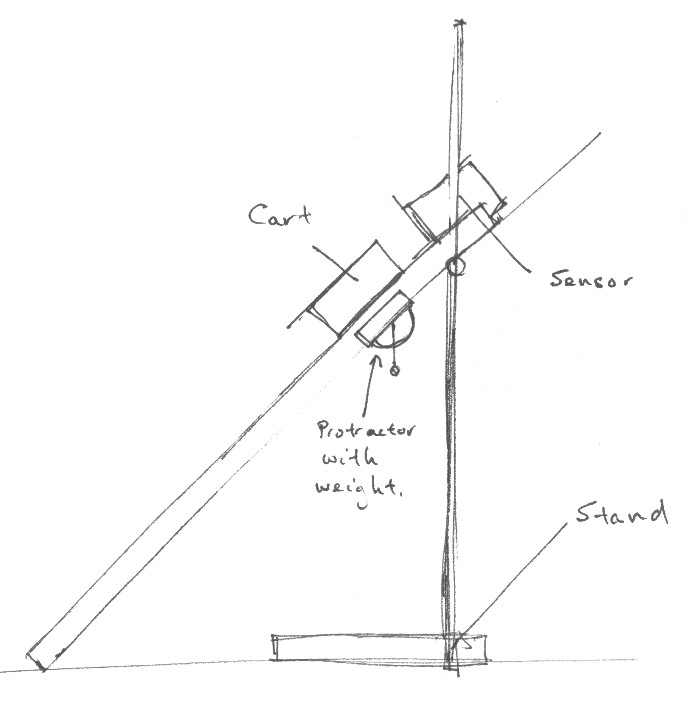 Cart
Sensor
Protractor
with
weight.
Stand